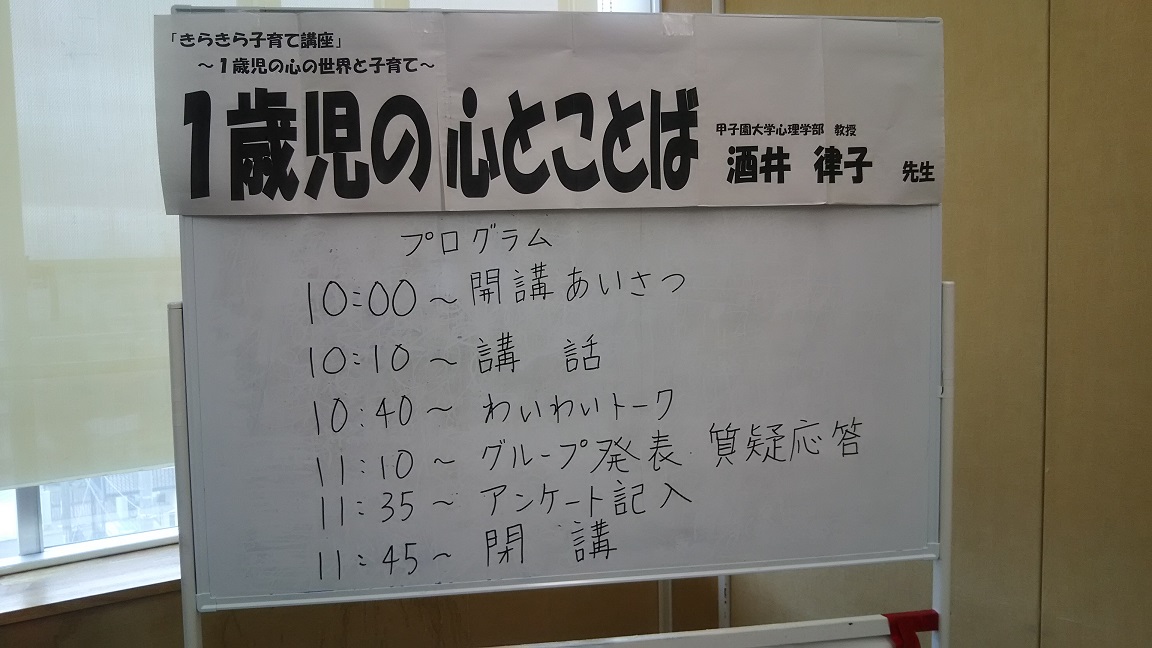 「きらきら子育て講座」
～１歳児の心の世界と子育て～
１歳児の心とことば
甲子園大学心理学部 教授
酒井 律子 先生
プログラム
10:00～開講あいさつ
10:10～講 話
10:40～わいわいトーク
11:10～グループ発表 質疑応答
11:35～アンケート記入
11:45～閉 講